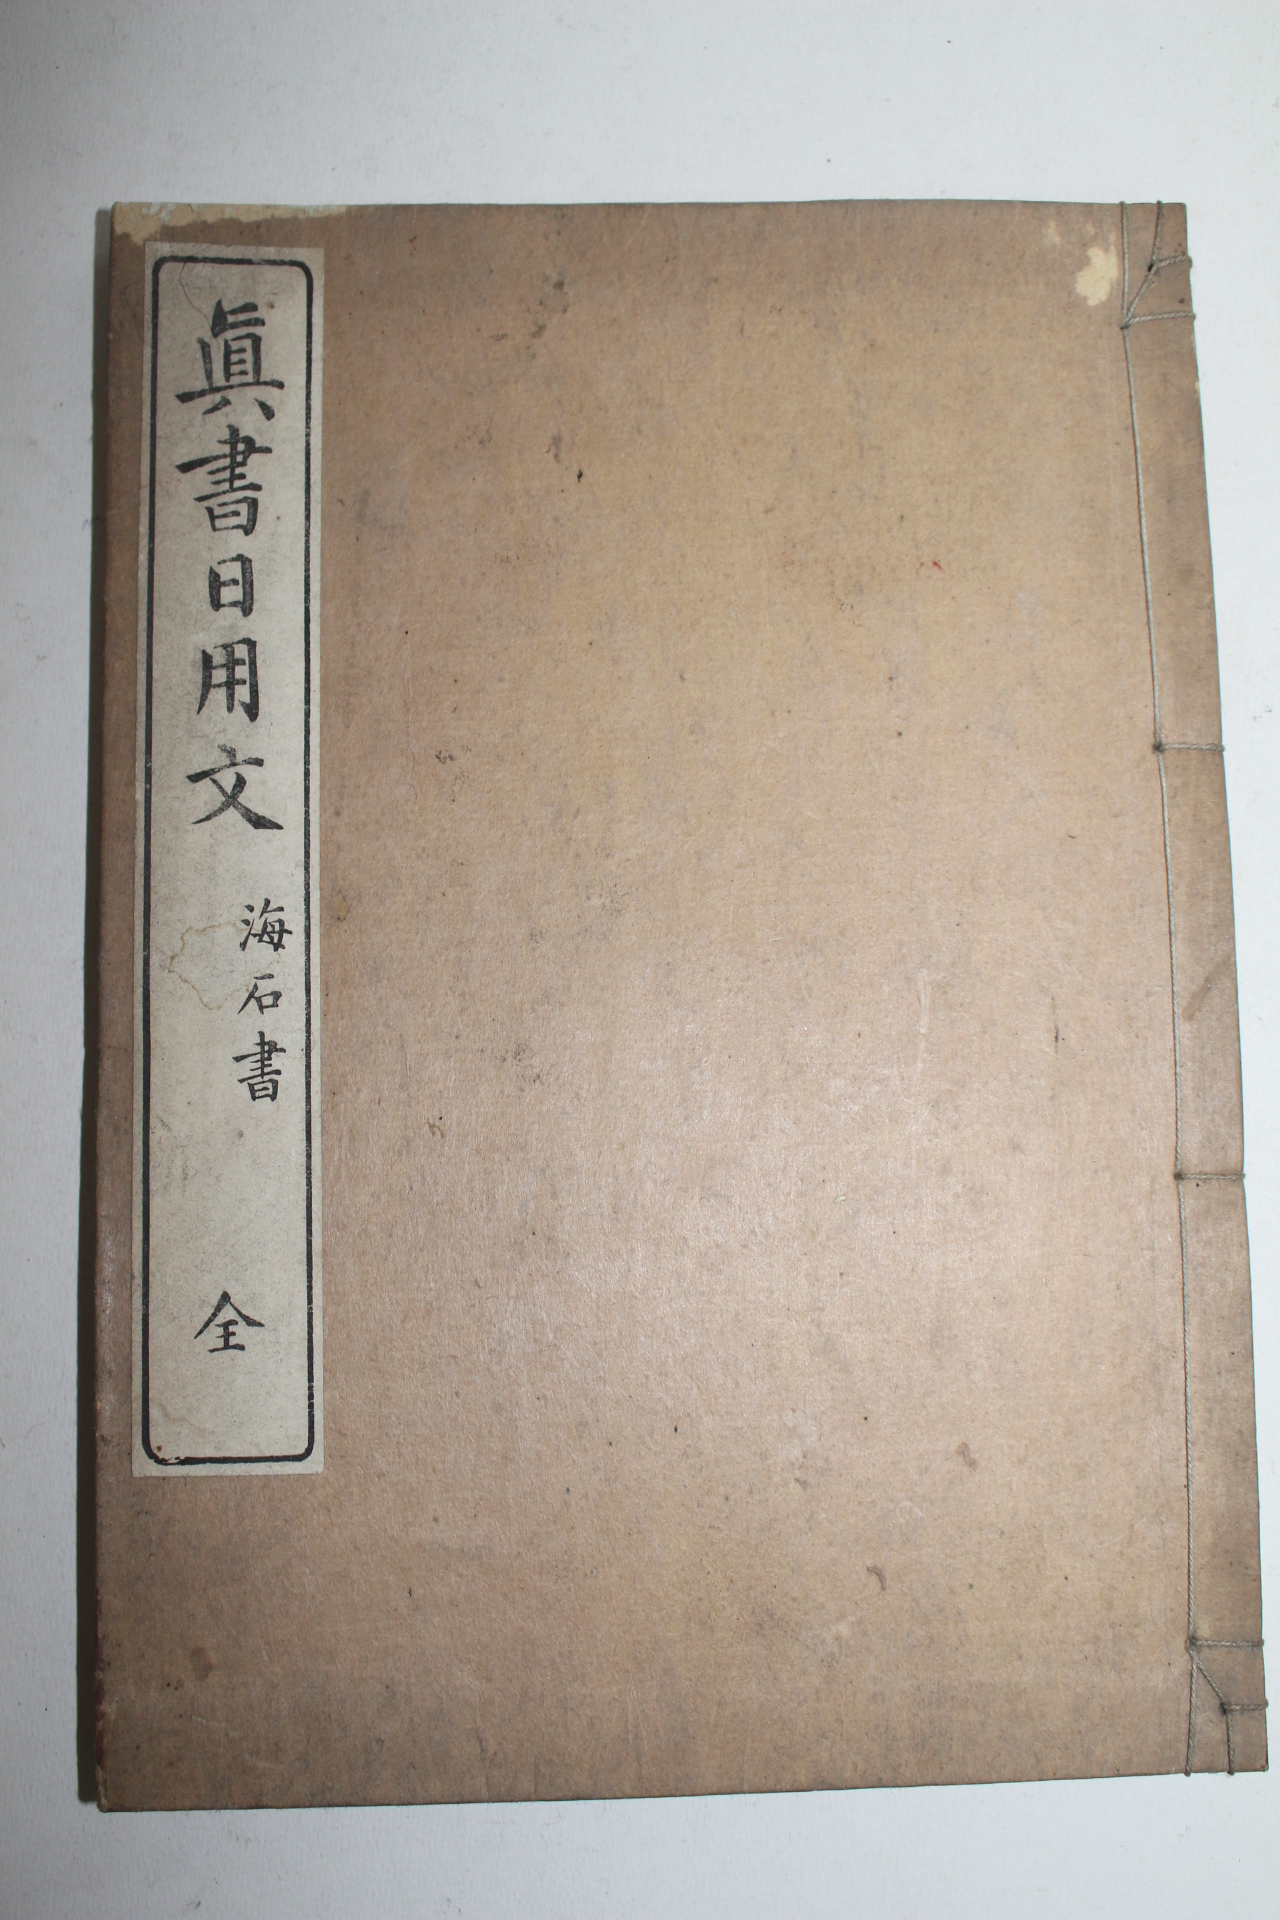 眞書日用文
海石書
全